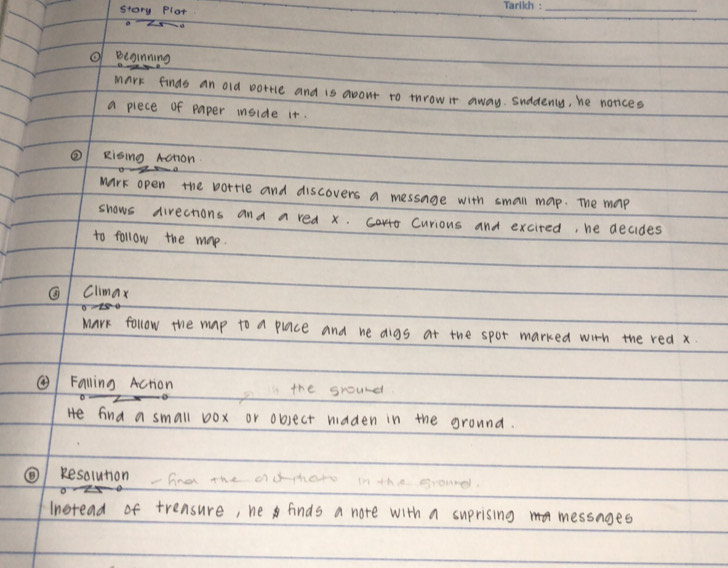 Story Plot
Tarikh :
① Beginning
Mark finds an old bottle and is about to throw it away. Suddenly, he notices
a piece of paper inside it.
② Rising Action
Mark open the bottle and discovers a message with small map. The map
shows directions and a red x. Curious and excited, he decides
to follow the map.
③ Climax
Mark follow the map to a place and he digs at the spot marked with the red x.
④ Falling Action
the ground.
He find a small box or object hidden in the ground.
⑤ Resolution
find the old photo in the ground.
Instead of treasure, he finds a note with a suprising messages